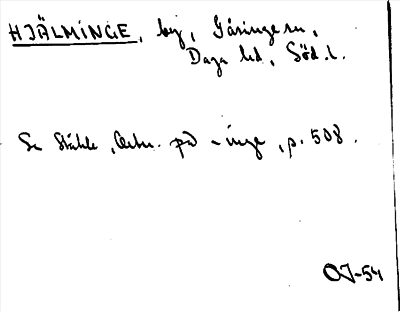 HJÄLMINGE, by, Gåsinge sn,
Daga hd, Söd. l.
Se Ståhle, Ortn. på -inge, p. 508.
OJ-54